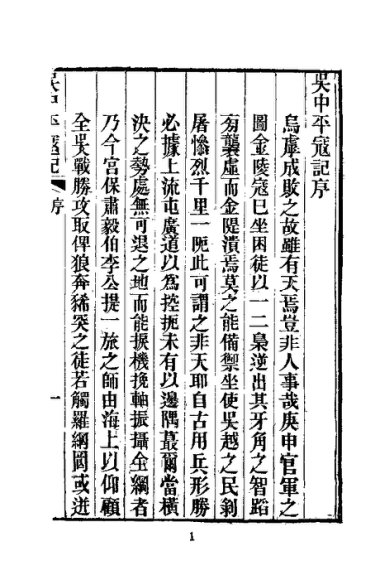 吳中平寇記序
烏虖成敗之故雖有天焉豈非人事哉庚申官軍之
圖金陵寇巳坐困徒以一二梟逆出其牙角之智蹈
瑕襲虛而金隄潰焉莫之能備禦坐使吳越之民剝
屠慘烈千里一阨此可謂之非天耶自古用兵形勝
必據上流屯廣道以為控扼未有以邊隅蕞爾當橫
決之勢處無可退之地而能捩機挽軸振攝全綱者
乃今宮保肅毅伯李公提一旅之師由海上以仰顧
全吳戰勝攻取俾狼奔豨突之徒若觸羅網罔或迸
吳中平寇記
序
一
1